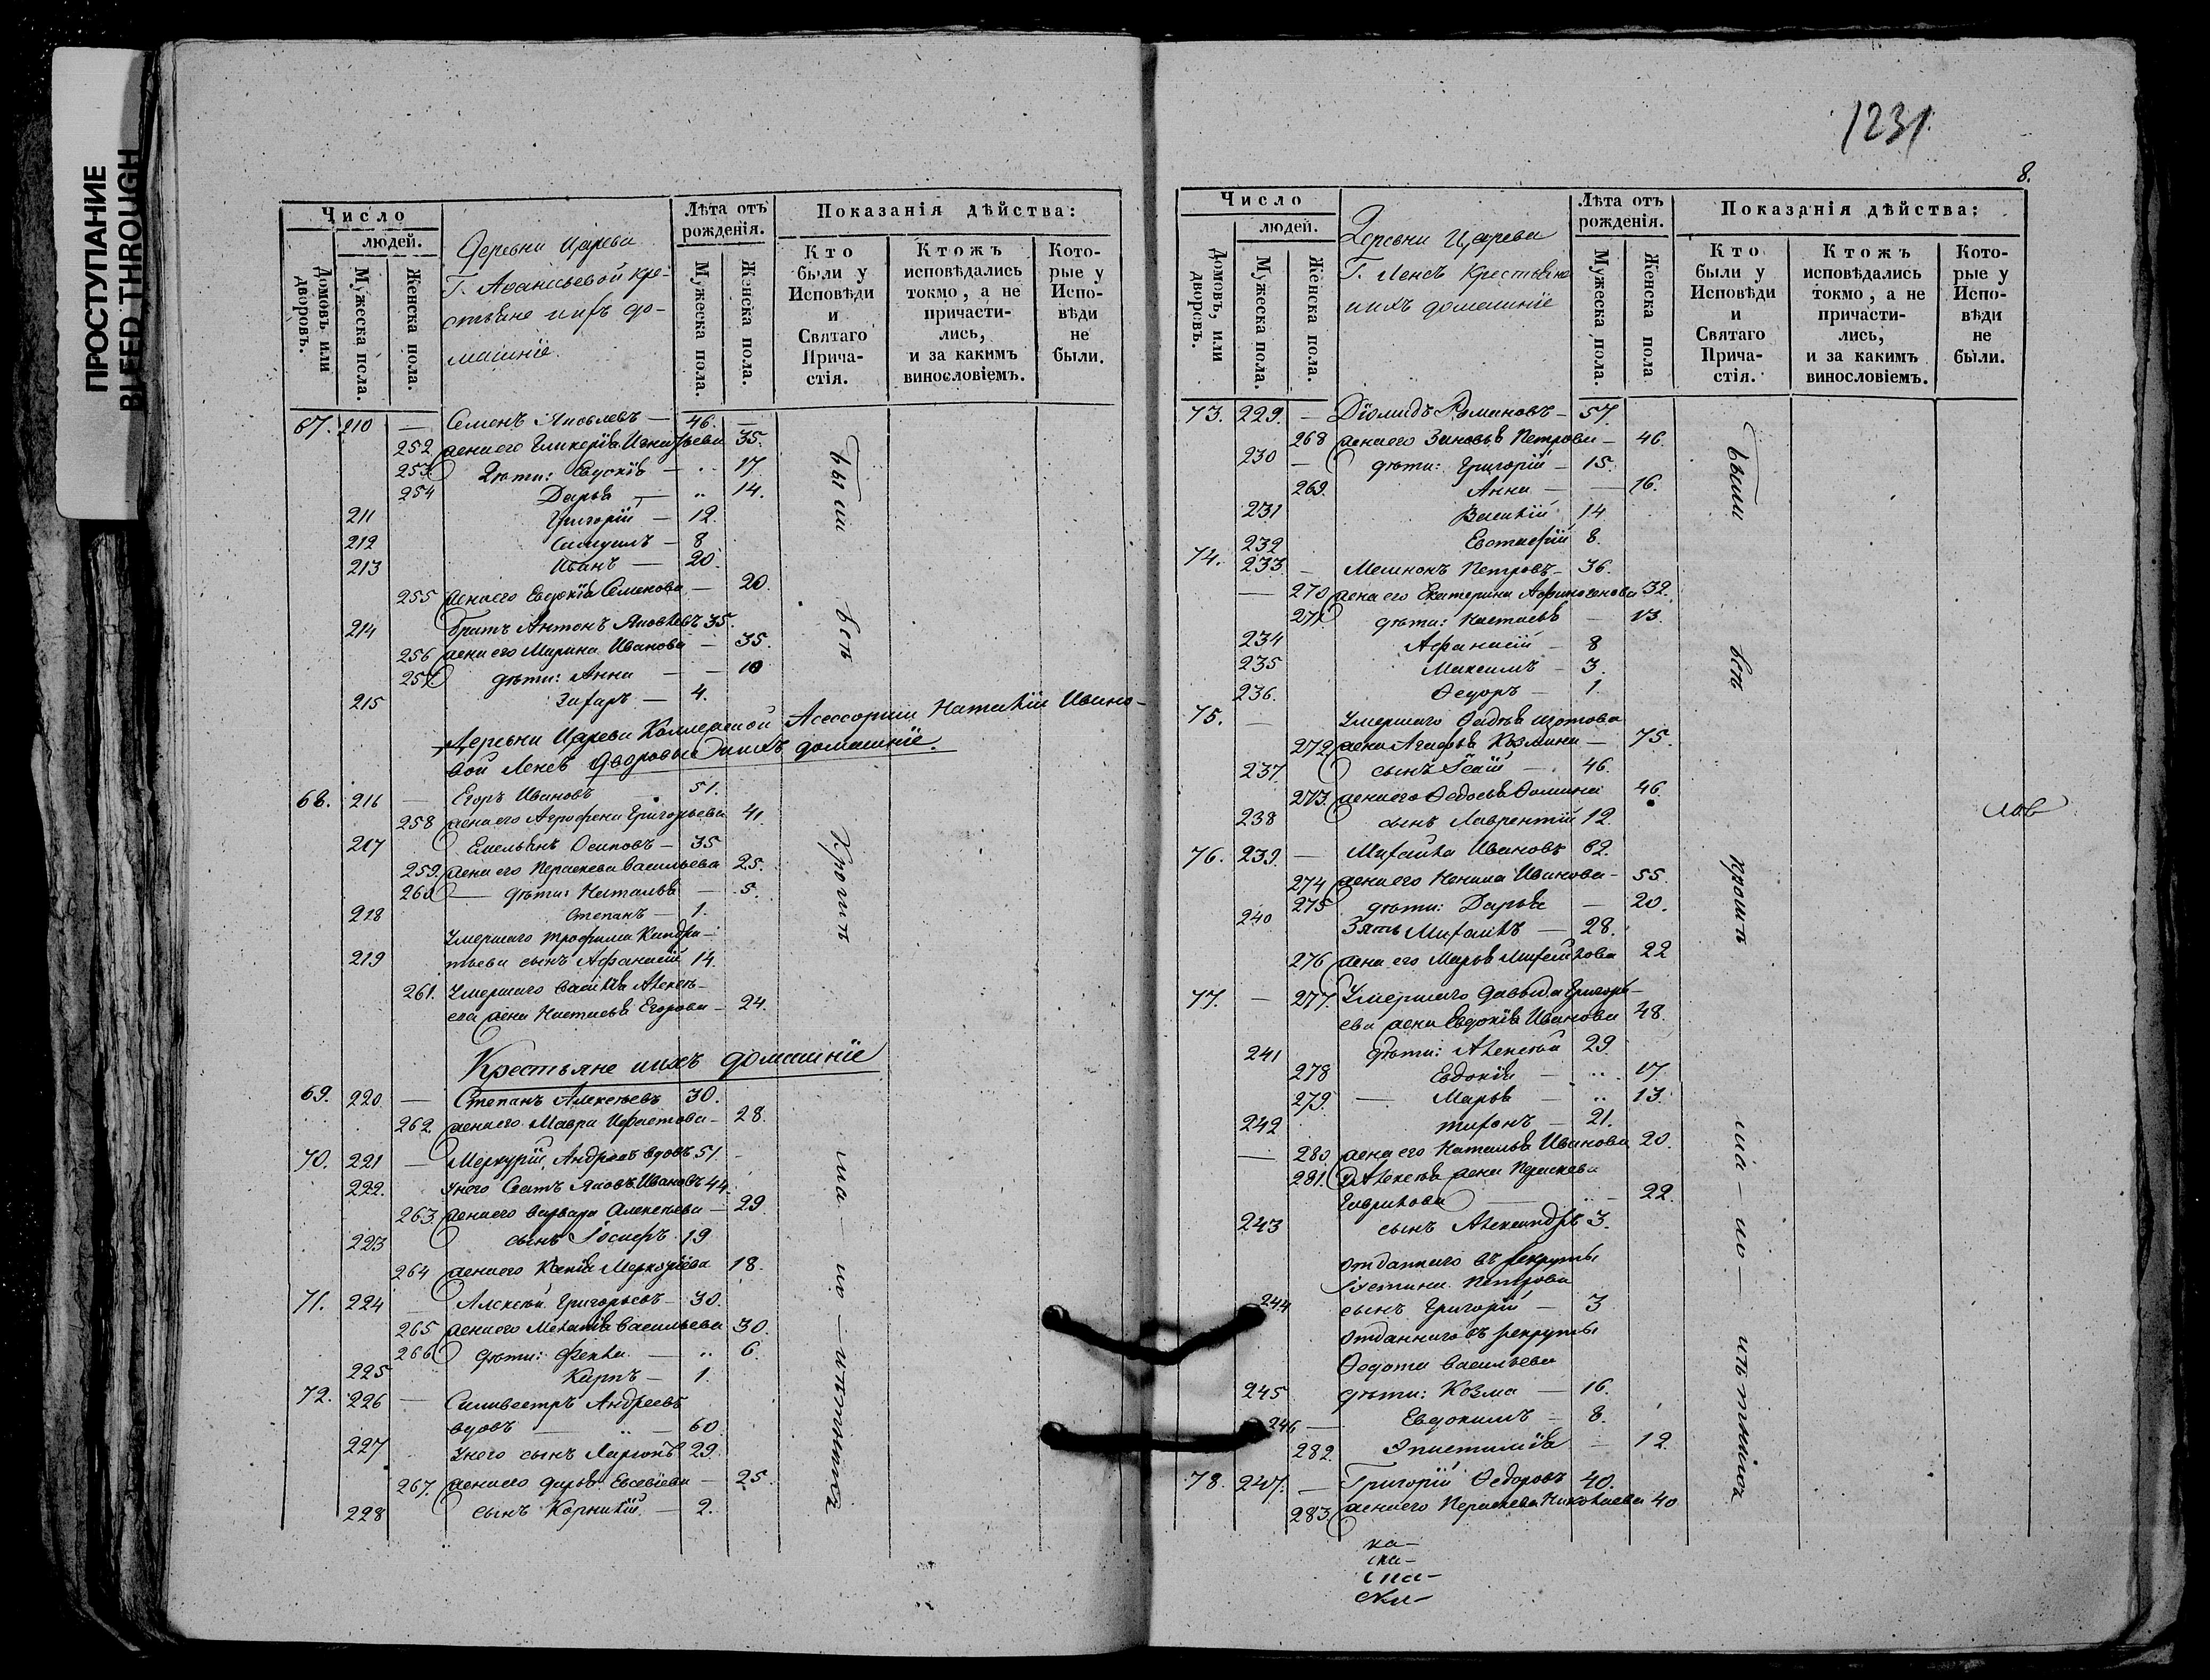 ПРОСТУПАНИЕ
BLEED THROUGH
Число
людей.
Домовъ, или дворовъ.
Мужеска пола.
Женска пола.
Деревни Царева
Г. Аѳанасьевой кре-
стьяне и ихъ до-
машніе.
Лѣта отъ рожденія.
Мужеска пола.
Женска пола.
Показанія дѣйства:
Кто были у Исповѣди и Святаго Прича- стія.
Ктожъ исповѣдались токмо, а не причасти- лись, и за какимъ винословіемъ.
Кото- рые у Испо- вѣди не были.
67. 210 — Семенъ Яковлевъ — 46. —
252 жена его Гликерія Игнатьева 35.
253 Дѣти: Евдокія — .. 17.
254 Дарья — .. 14.
211 Григорій — 12.
212 Самуилъ — 8
213 Иванъ — 20.
255 жена его Евдокія Семенова — 20.
214 братъ Антонъ Яковлевъ 35.
256 жена его Марина Иванова — 35.
257 дѣти: Анна — — 10
215 Захаръ — 4.
Деревни Царева Коллежской Асессорши Наталіи Ивано-
вой Ленсъ Дворовые и ихъ домашніе.
68. 216 — Егоръ Ивановъ 51.
258 жена его Агрофена Григорьева 41
217 Емельянъ Осиповъ — 35
259. жена его Параскева Васильева 25.
260 — дѣти: Наталья — 5.
218 Степанъ — 1.
Умершаго Трофима Кандра-
219 тьева сынъ Афанасій 14.
261. Умершаго Василья Алексѣ-
ева жена Настасья Егорова — 24.
Крестьяне и ихъ домашніе
69. 220 — Степанъ Алексѣевъ 30.
262 жена его Мавра — 28.
70. 221 — Меркурій Андреевъ вдовъ 51. -
222. У него Зять Яковъ Ивановъ 44.
263. жена его Варвара Алексѣева — 29
223 сынъ Іосифъ 19
264 жена его Ксенія Меркуріева 18.
71. 224 — Алексѣй Григорьевъ — 30.
265 жена его Меланія Васильева 30.
266 Дѣти: Фекла — .. 6.
225 Карпъ — 1.
72. 226 — Сильвестръ Андреевъ
вдовъ — .. — 60
227 У него сынъ Ларіонъ 29.
267. жена его Дарья Евсевіева — 25.
228 сынъ Корнилій — 2.
Были
всѣ
кромѣ
1231
8.
Число
людей.
Домовъ, или дворовъ.
Мужеска пола.
Женска пола.
Деревни Царева
Г. Ленсъ Крестьяне
и ихъ домашніе
Лѣта отъ рожденія.
Мужеска пола.
Женска пола
Показанія дѣйства:
Кто были у Исповѣди и Святаго Прича- стія.
Ктожъ исповѣдались токмо, а не причасти- лись, и за какимъ винословіемъ.
Кото- рые у Испо- вѣди не были.
73. 229. — Діомидъ Романовъ — 57.
268 жена его Зиновья Петрова — 46.
230 — дѣти: Григорій — 15.
269. Анна — — 16.
231 Василій 14
232 Евстафій 8.
74. 233. — Мемнонъ Петровъ — 36.
— 270 жена его Екатерина Афиногенова 32.
271 дѣти: Настасья — 13.
234 Афанасій — 8
235 Максимъ — 3.
236. Ѳедоръ — 1.
75. — Умершаго Фадѣя Изотова
272. жена Агафья Козмина — 75.
237. сынъ Ісаій — 46.
273. жена его Ѳедосья Ѳомина 46.
238 сынъ Лаврентій 12
76. 239. — Михайла Ивановъ 62.
274 жена его Ненила Иванова — 55.
275 дѣти: Дарья — 20.
240 Зять Михаилъ — 28.
276 жена его Марья Михайлова 22
77. — 277. Умершаго Давыда Григорь-
ева жена Евдокія Иванова 48.
241 дѣти: Алексѣй 29.
278 Евдокія — .. 17.
279. — Марья — .. 13.
242 Тихонъ — 21.
— 280 жена его Наталья Иванова 20.
281. Алексѣя жена Параскева
Гаврилова — .. — 22.
243 сынъ Александръ 3.
Отданнаго въ рекруты
Іустина Петрова
244 сынъ Григорій — 3
Отданнаго въ рекруты
Ѳедота Васильева
245 дѣти: Козма — 16.
246 — Евдокимъ — 8.
282. Епистимія — 12.
78. 247. — Григорій Ѳедоровъ 40.
283. жена его Параскева Николаева 40
Были
всѣ
кромѣ
ма — ло — лѣтнихъ